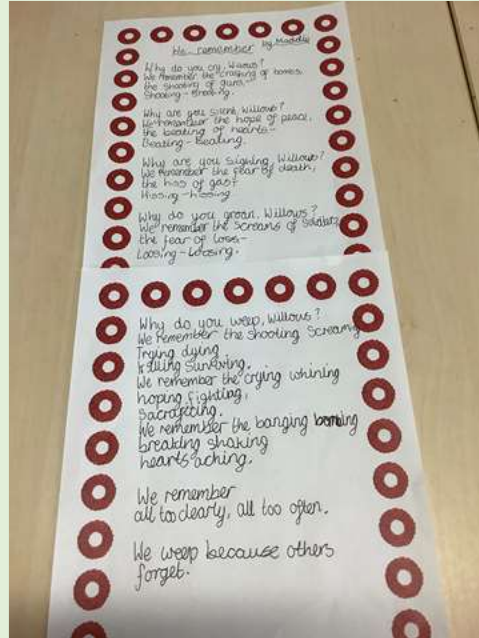 We remember by Maddie
Why do you cry, Willows?
We remember the crashing of bombs
the shooting of guns,-
Shooting-Shooting.
Why are you silent, Willows?
We remember the hope of peace,
the beating of hearts-
Beating-Beating.
Why are you Sighing, Willows?
We remember the fear of death,
the hiss of gas?
Hissing-hissing
Why do you groan, Willows?
We remember the screams of Soldiers,
the fear of loss-
Loosing-Loosing.
Why do you weep, Willows?
We remember the shooting Screaming
Trying dying
killing Surviving.
We remember the crying whining
hoping fighting,
Sacraficing.
We remember the banging bombing
breaking shaking
hearts aching.
We remember
all too clearly, all too often.
We weep because others
forget.